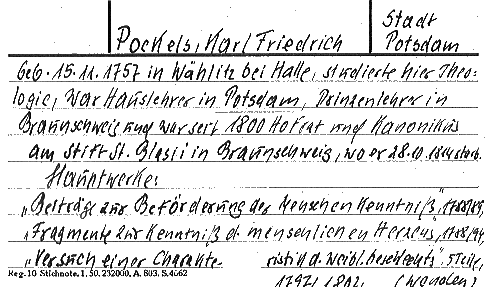 Pockels, Karl Friedrich
Stadt
Potsdam
Geb. 15.11.1757 in Wählitz bei Halle, studierte hier Theo-
logie, war Hauslehrer in Potsdam, Prinzenlehrer in
Braunschweig und war seit 1800 Hofrat und Kanonikus
am Stift St. Blasii in Braunschweig, wo er 28.10.1814 starb.
Hauptwerke:
„Beiträge zur Beförderung der Menschen Kenntniß", 1788/89,
„Fragmente zur Kenntniß d. menschlichen Herzens, 1788/94,
„Versuch einer Charakte- ristik d. weibl. Geschlechts". 5 Teile,
Reg. 10 Stichnote. 1, 50. 232000. A. 803. S. 4662
1797/1802 (wenden)